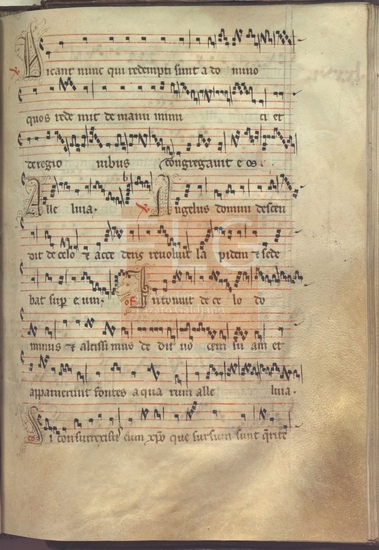 Dicant nunc qui redempti sunt a do mino
quos rede mit de manu inimi ci et
de regio nibus congregavit e os.
Alle luia. Angelus domini descen
dit de celo & acce dens revoluit la pidem & sede
bat sup e um. Intonuit de ce lo do
minus & altissi mus de dit vo cem su am et
apparuerunt fontes a qua rum alle luia.
Si consurrexistis cum xpo que sursum sunt querite